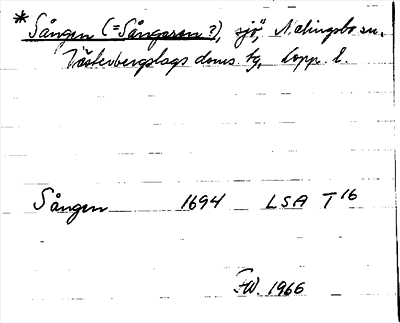 * Sången (=Sångaren?), sjö, Malingsbo sn.
Västerbergslags doms. tg, Kopp. l.
Sången 1694 LSA T 16
F.W. 1966